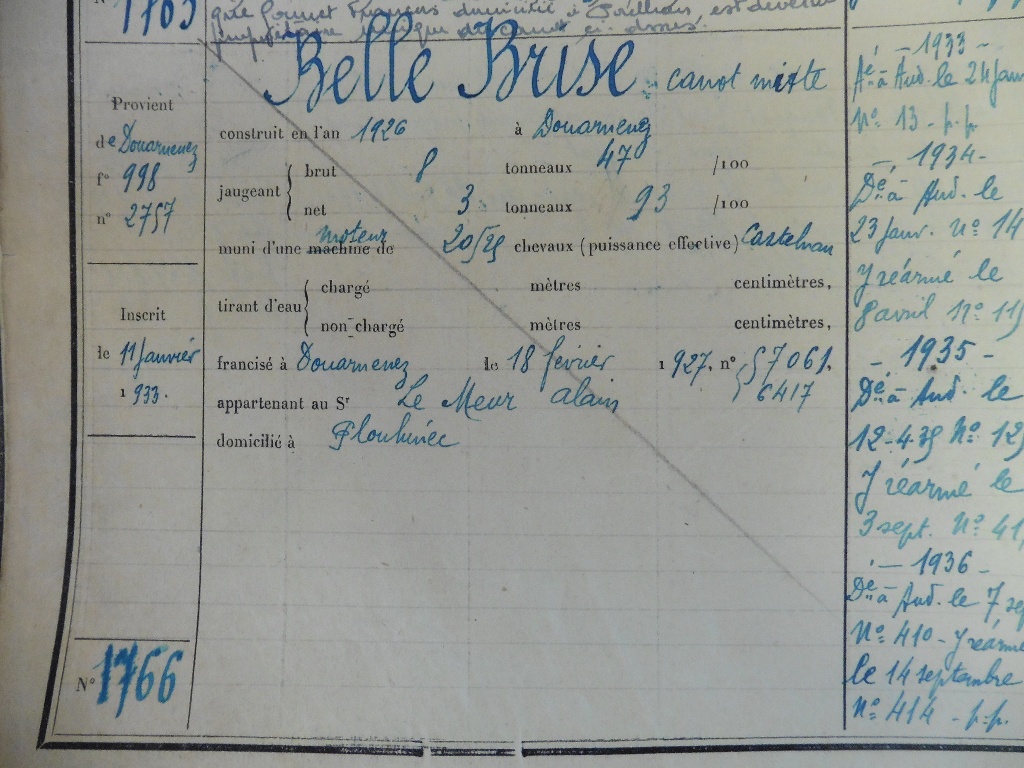 N° 1765
que Gounet François domicilié à est devenu
Belle Brise canot mixte
Provient
de Douarnenez
f° 998
n° 2757
Inscrit
le 11 Janvier
1 933.
N° 1766
construit en l'an 1926 à Douarnenez
jaugeant { brut 8 tonneaux 47 /100
net 3 tonneaux 93 /100
muni d'une machine de moteur 20/25 chevaux (puissance effective) Castelnau
tirant d'eau { chargé mètres centimètres,
non chargé mètres centimètres,
francisé à Douarnenez le 18 février 1 927, n° { 7061.
6417
appartenant au Sr Le Meur Alain
domicilié à Plouhinec
- 1933 -
Aé à Aud. le 24 janv
N° 13 - p.p.
- 1934 -
Dé à Aud. le
23 janv. N° 14
Y réarmé le
8 avril N° 115
- 1935 -
Dé à Aud. le
12-4-35 N° 125
Y réarmé le
3 sept. N° 41
- 1936 -
Dé à Aud. le 7 sep
N° 410 - Y réarmé
le 14 septembre
N° 414 - p.p.